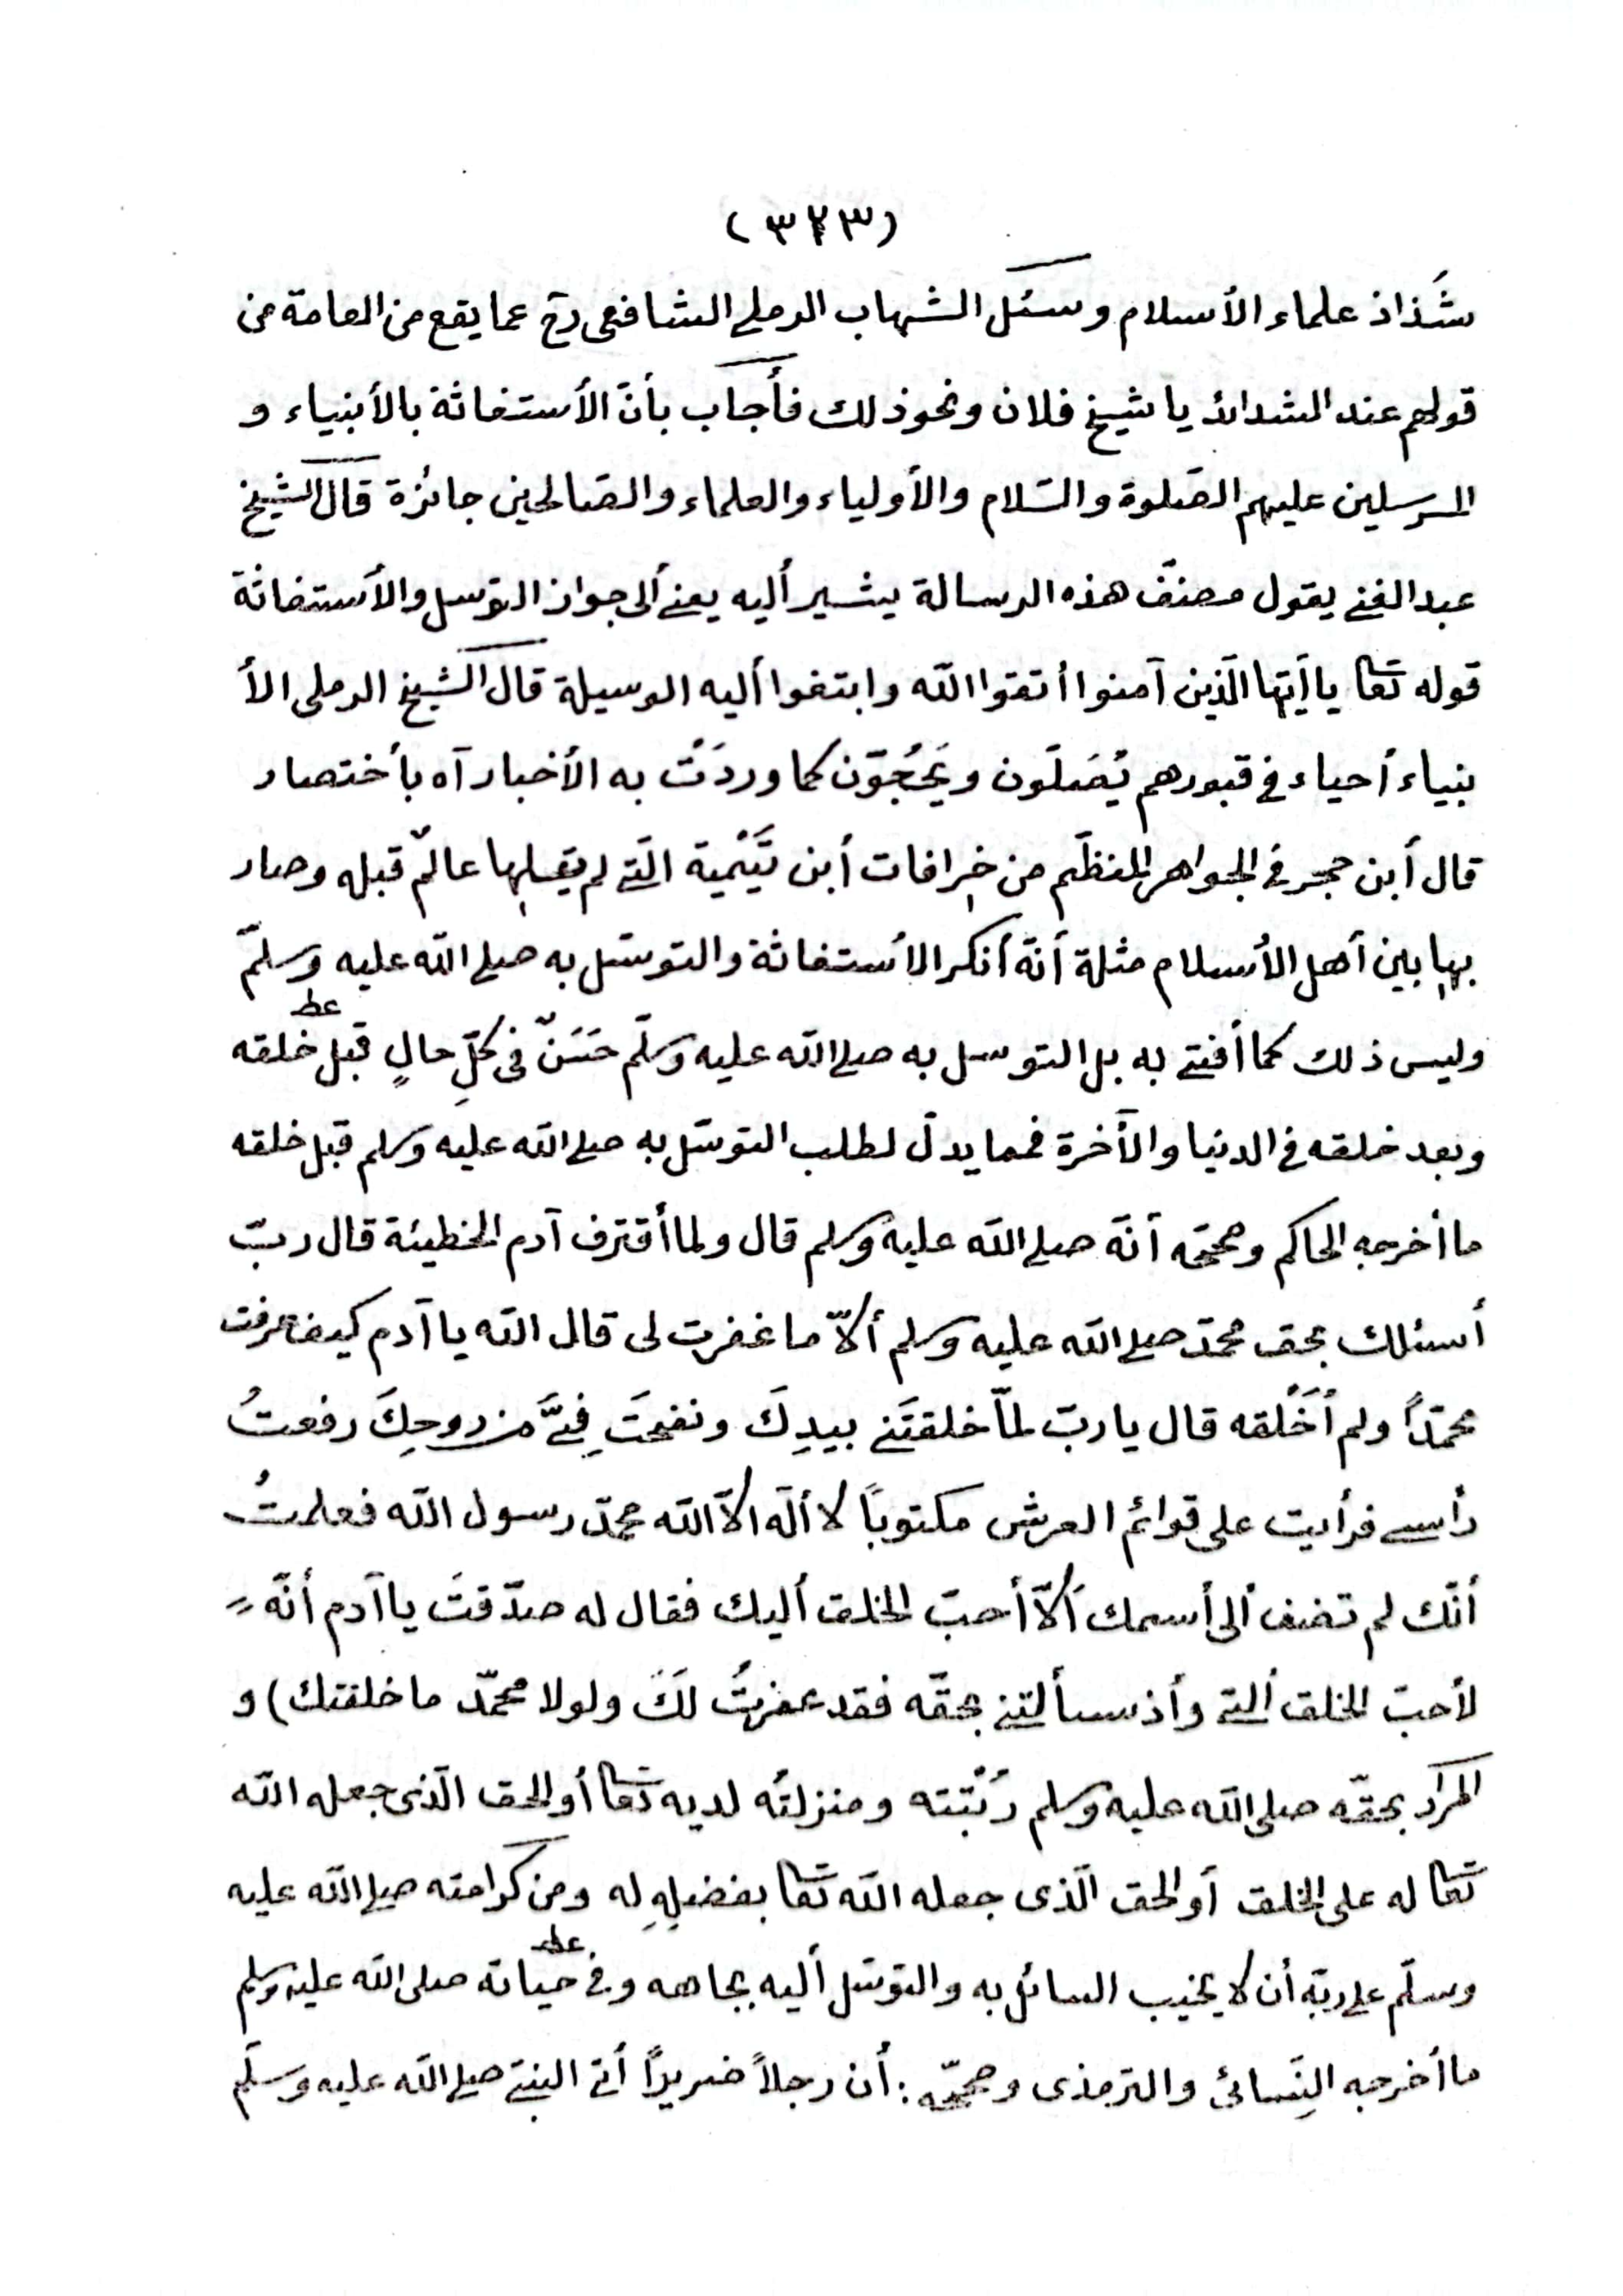 (٣٢٣)
شَذاذ علماء الأسلام وسئل الشهاب الرملي الشافعى رح عما يقع من العامة من
قولهم عند الشدائد يا شيخ فلان ونحو ذلك فأجاب بأنّ الأستغاثة بالأنبياء و
المرسلين عليهم الصّلوة والسّلام والأولياء والعلماء والصّالحين جائزة قال الشيخ
عبد الغني يقول مصنّف هذه الرسالة يشير أليه يعني ألى جواز التوّسل والأستغاثة
قوله تعا يا أيّها الّذين آمنوا أتقوا اللّه وابتغوا أليه الوسيلة قال الشيخ الرملى الأ
نبياء أحياء في قبورهم يُصَلّون ويَحُجّون كما وردَتْ به الأخبار آه بأختصار
قال أبن حجر في الجواهر المنظّم من خِرافات أبن تَيْمية الّتي لم يقلها عالمٌ قبله وصار
بها بين أهل الأسلام مثلة أنّه أنكر الأستغاثة والتوسّل به صلى اللّه عليه وسلّم
وليس ذلك كما أفتي به بل التوسل به صلى اللّه عليه وسلّم حَسَنٌ فى كلِّ حالٍ قبل خلقه
عط
وبعد خلقه في الدنيا والآخرة فمما يدلّ لطلب التوسّل به صلى اللّه عليه وسلم قبل خلقه
ما أخرجه الحاكم وصحّحه أنّه صلى اللّه عليه وسلم قال ولما أقترف آدم الخطيئة قال ربّ
أسئلك بحق محمّد صلى اللّه عليه وسلم ألاّ ما غفرت لى قال اللّه يا آدم كيف عرفت
محمّداً ولم أَخْلقه قال يا ربّ لمّا خلقتَني بيدِكَ ونفختَ فِيَّ من روحِكَ رفعتُ
رأسي فرأيت على قوائم العرش مكتوباً لا ألَه الاّ اللّه محمّد رسول اللّه فعلمتُ
أنّك لم تضف ألى أسمك ألاّ أحبّ الخلق أليك فقال له صدّقتَ يا آدم أنّه
لأحبّ الخلق أليّ وأذ سألتني بحقّه فقد غفرتُ لَكَ ولولا محمّد ما خلقتك) و
المراد بحقّه صلى اللّه عليه وسلم رُتْبَته ومنزلتُه لديه تعا أو الحق الّذى جعله اللّه
تعا له على الخلق أو الحق الّذى جعله اللّه تعا بفضلِهِ له ومن كرامته صلى اللّه عليه
وسلّم على ربّه أن لا يخيب السائل به والتوسّل أليه بجاهه وفي حياته صلى اللّه عليه وسلم
عط
ما أخرجه النِّسائى والترمذى وصحّحه: أن رجلاً ضريراً أتى النبيّ صلى اللّه عليه وسلّم